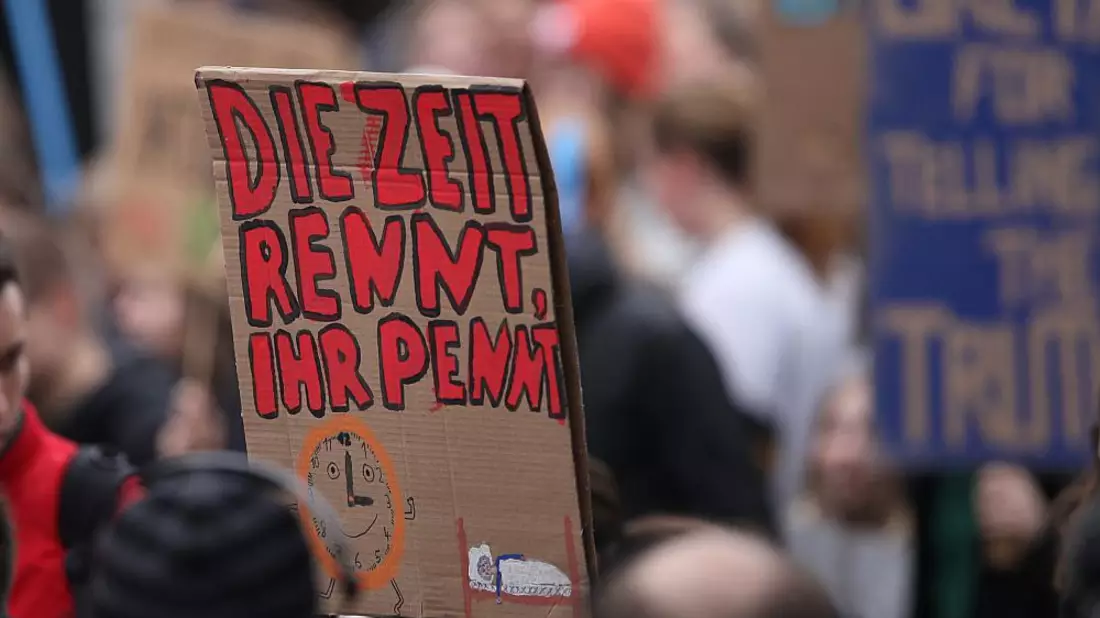 DIE ZEIT
RENNT,
IHR PENNT!
12
3
6
FOR
TELLING
THE
TRUTH